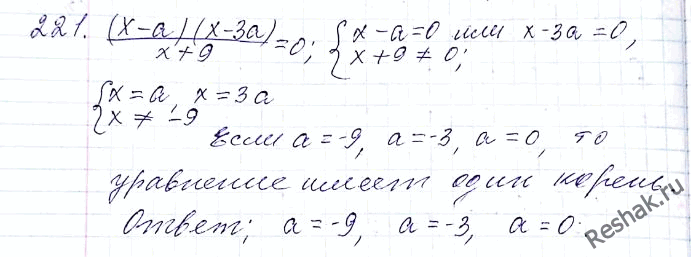 221. (x-a)(x-3a)/x+9 =0; { x-a=0 или x-3a=0, x+9≠0;
{ x=a, x=3a
x≠-9
Если a=-9, a=-3, a=0, то
уравнение имеет один корень.
Ответ; a=-9, a=-3, a=0.
Reshak.ru